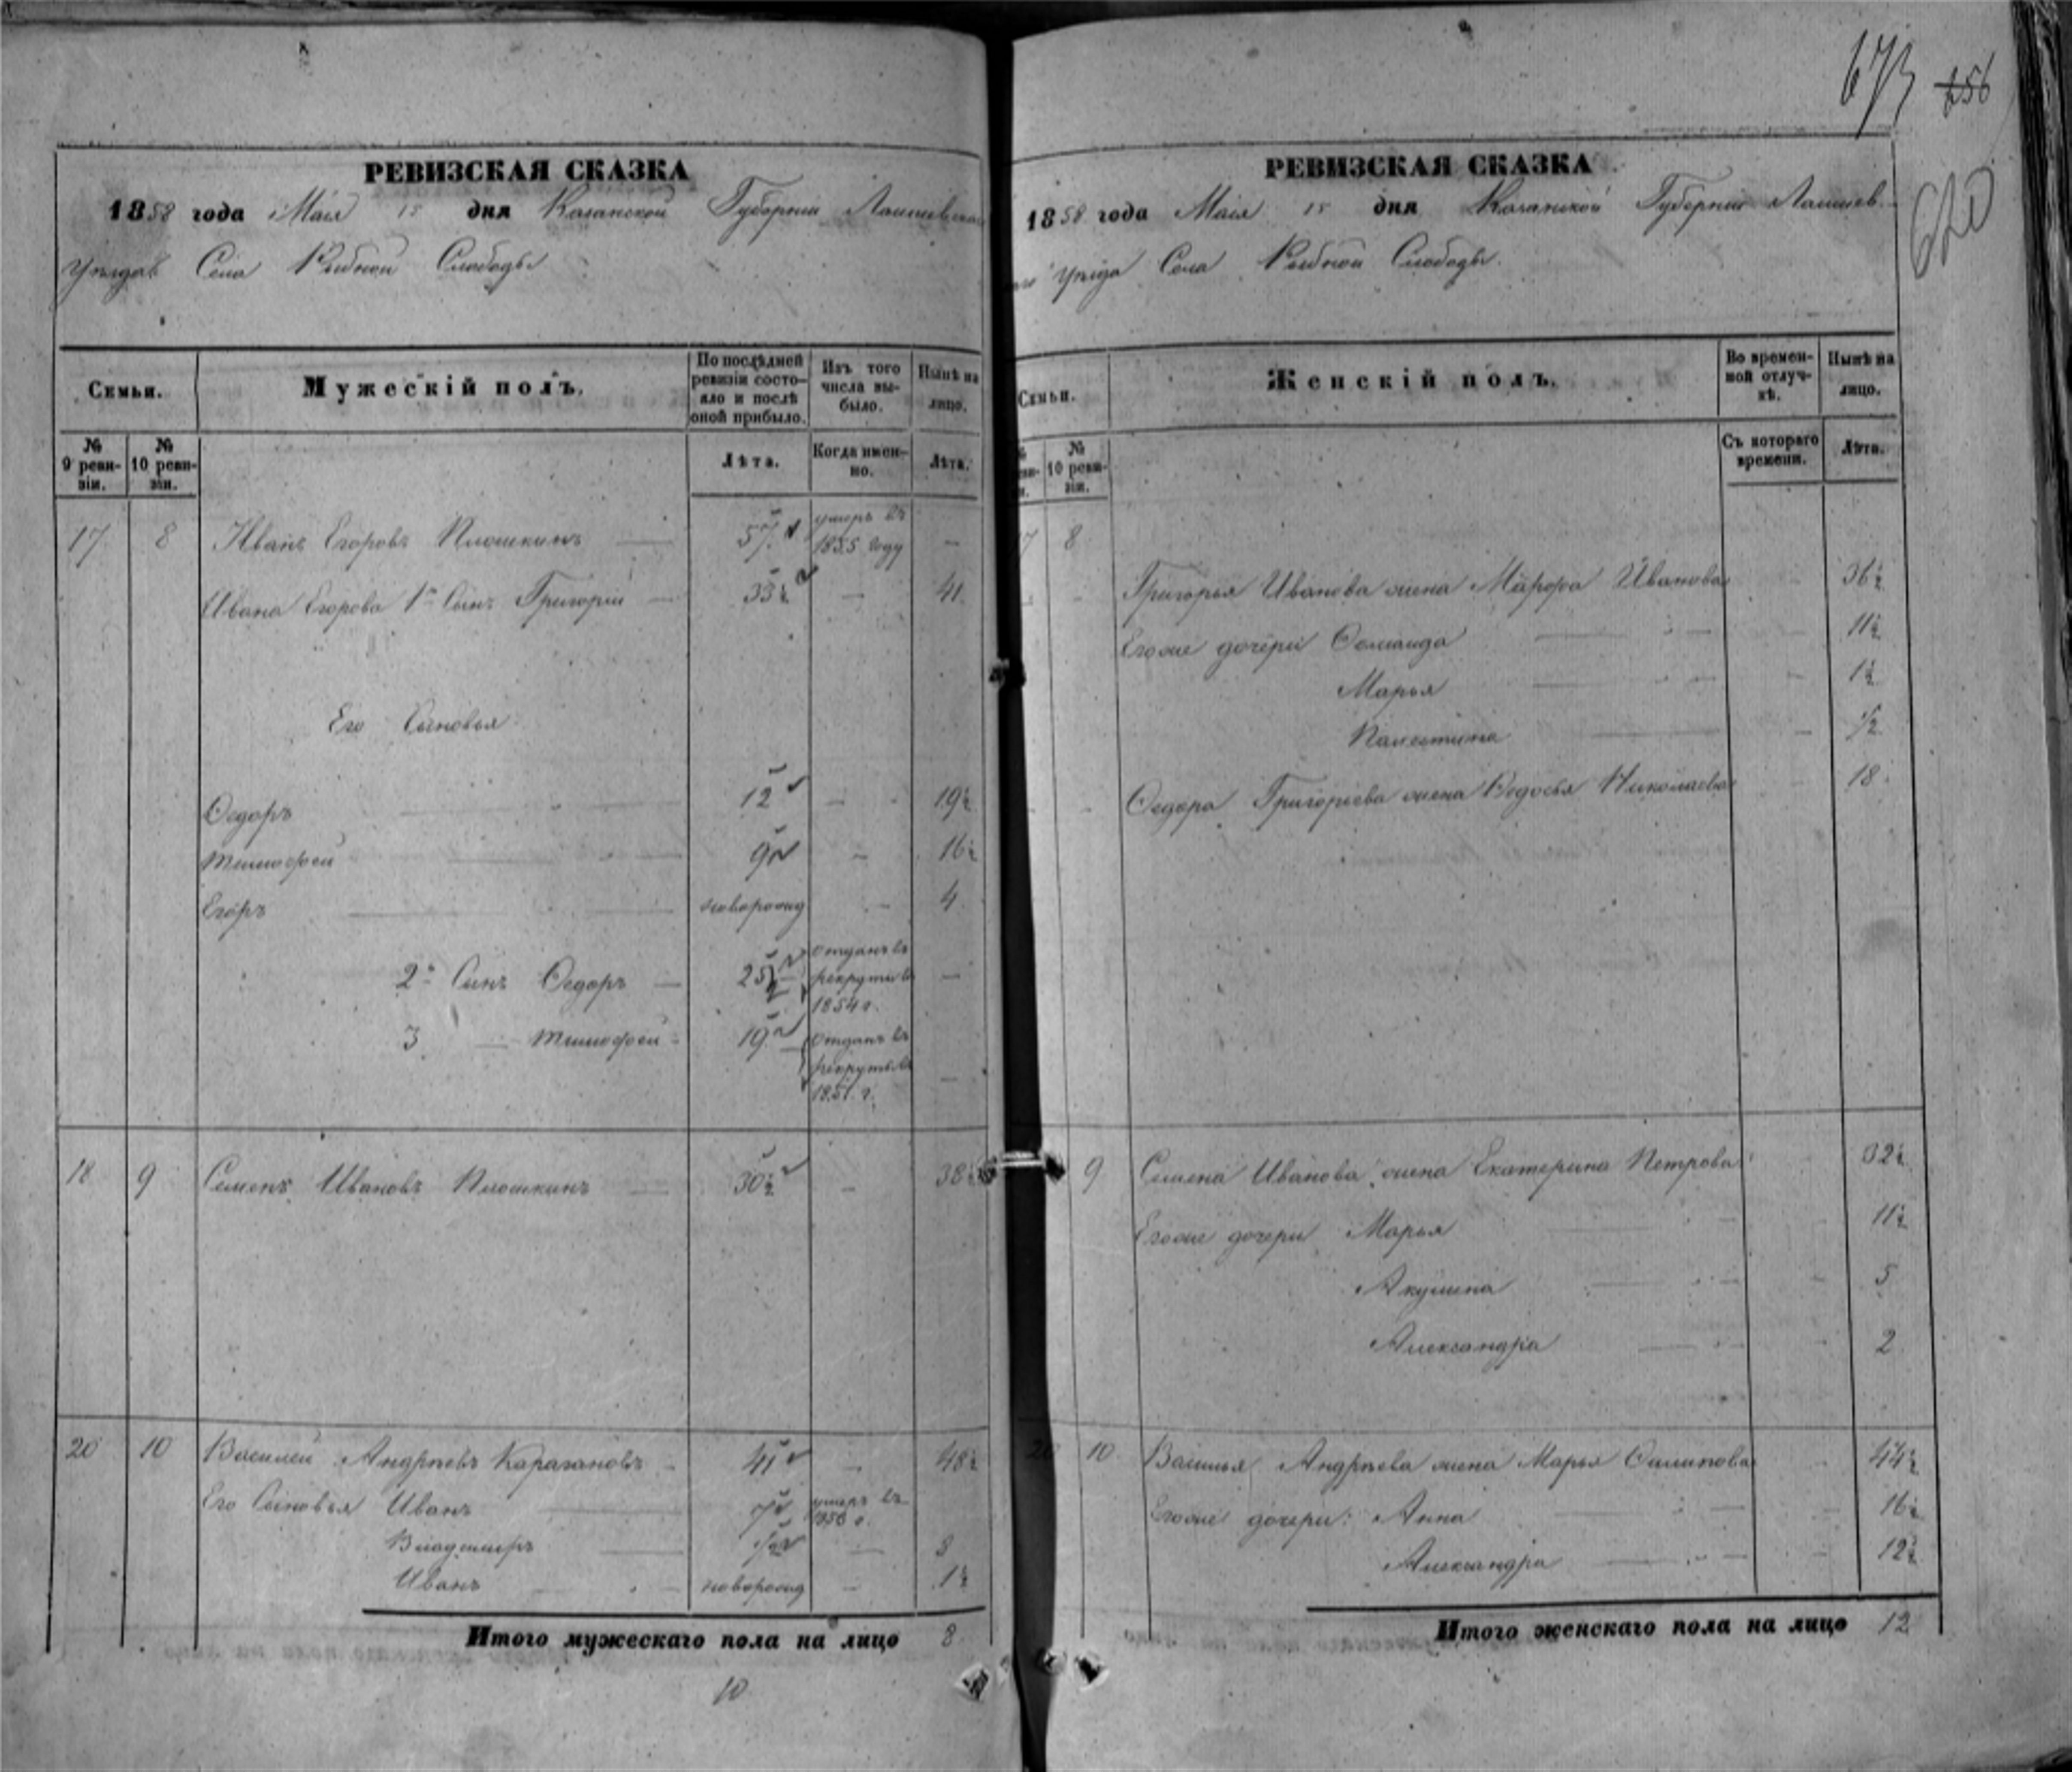 673 656
620
РЕВИЗСКАЯ СКАЗКА
1858 года Маія 15 дня Казанской Губерніи Лаишевскаго
уѣзда Села Рыбной Слободы
Семьи.
Мужескій полъ.
По послѣдней ревизіи состояло и послѣ оной прибыло.
Изъ того числа выбыло.
Нынѣ на лицо.
№ 9 ревизіи.
№ 10 ревизіи.
Лѣта.
Когда именно.
Лѣта.
17 8 Иванъ Егоровъ Плошкинъ 57 умеръ въ 1855 году —
Ивана Егорова 1й Сынъ Григорій 33½ — 41
Его Сыновья
Ѳедоръ 12 — 19½
Тимофей 9 — 16½
Егоръ новорожд — 4
2й Сынъ Ѳедоръ 25½ отданъ въ рекруты въ 1854 г. —
3 — Тимофей 19 отданъ въ рекруты въ 1851 г. —
18 9 Семенъ Ивановъ Плошкинъ 30½ — 38½
20 10 Василей Андреевъ Карагановъ 41 — 48½
Его Сыновья Иванъ 7 умеръ въ 1850 г.
Владимиръ ½ — 8
Иванъ новорожд — 1½
Итого мужескаго пола на лицо 8
10
РЕВИЗСКАЯ СКАЗКА
1858 года Маія 15 дня Казанской Губерніи Лаишев-
аго уѣзда Села Рыбной Слободы.
Семьи.
Женскій полъ.
Во временной отлучкѣ.
Нынѣ на лицо.
№ 10 ревизіи.
Съ котораго времени.
Лѣта.
17 8
Григорья Иванова жена Марфа Иванова 36½
Егоже дочери 11½
Марья 1½
½
Ѳедора Григорьева жена Ѳедосья Николаева 18
9 Семена Иванова жена Екатерина Петрова 32½
Егоже дочери Марья 11½
Акулина 5
Александра 2
20 10 Василья Андреева жена Марья Филипова 44½
Егоже дочери: Анна 16½
Александра 12½
Итого женскаго пола на лицо 12